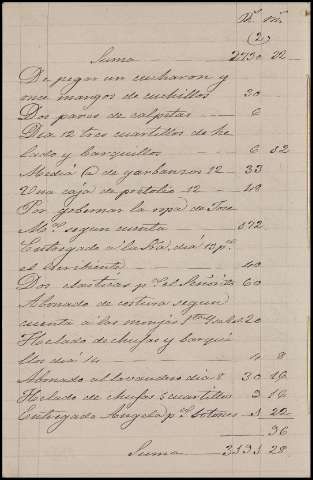 Rˢ. mˢ.
(2)
Suma 2730 22
De pegar un cucharon y
once mangos de cuchillos 30
Dos pares de calpetas 6
Dia 12 tres cuartillos de he
lado y barquillos 6 32
Media @ de garbanzos 12 33
Una caja de 12 48
Por gobernar la ropa de Jose
Mª. segun cuenta 172
Entregado á la Sra. dia 13 pª.
el 40
Dos elasticas pª. el Señorito 60
Abonado de costura segun
cuenta á las monjas 20
Helado de chufas y barqui
llos dia 14 4 8
Abonado al lavandero dia 8 30 16
Helado de chufas 5 cuartillos 9 16
Entregado Angela pª. botones 1 22
96
Suma 3191 28